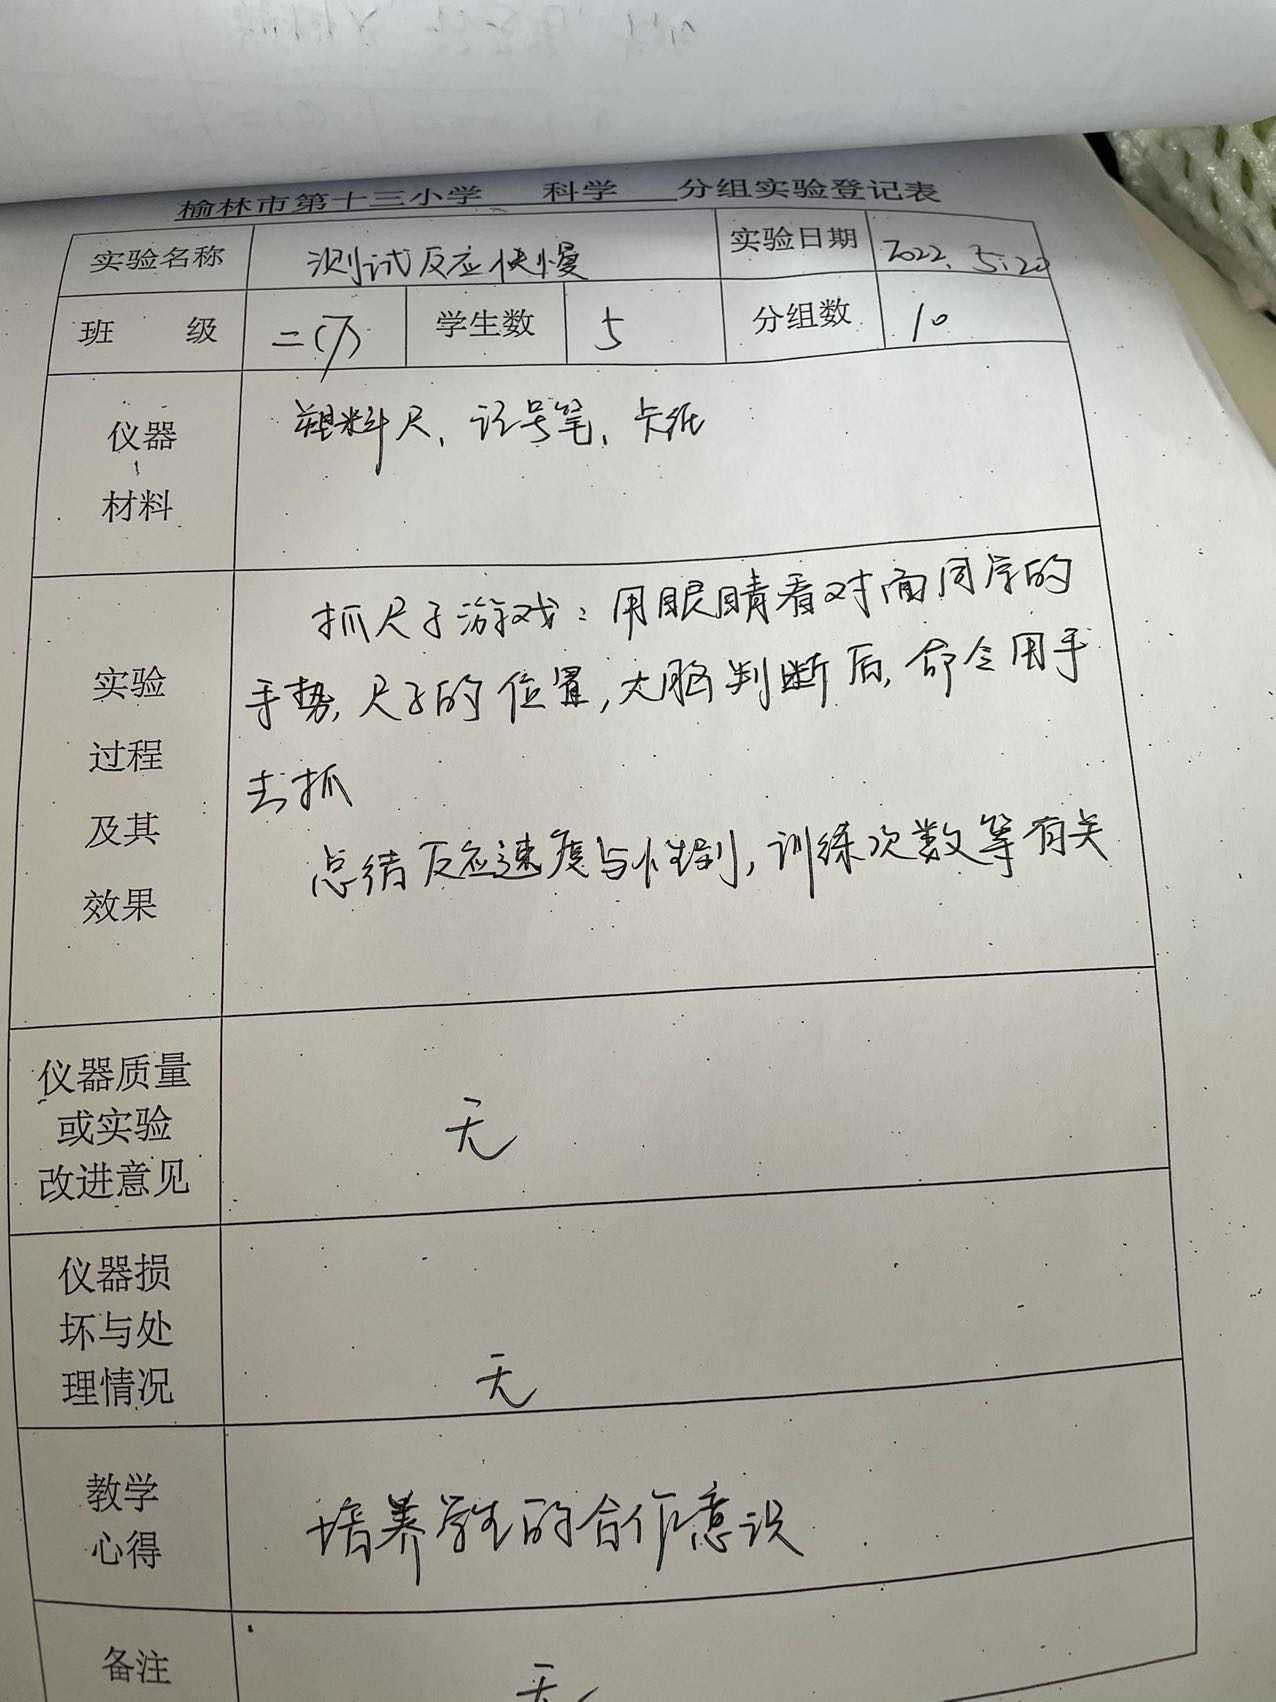 榆林市第十三小学 科学 分组实验登记表
实验名称 测试反应快慢 实验日期 2022.5.20
班 级 二(7) 学生数 5 分组数 10
仪器 材料 塑料尺、记号笔、卡纸
实验 过程 及其 效果
抓尺子游戏：用眼睛看对面同学的
手势，尺子的位置，大脑判断后，命令用手
去抓
总结反应速度与性别，训练次数等有关
仪器质量
或实验
改进意见
无
仪器损
坏与处
理情况
无
教学
心得
培养学生的合作意识
备注
无